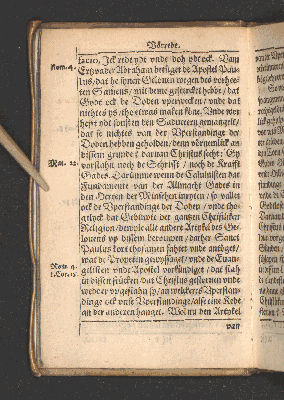 Vörrede.
Rom. 4.
Vam
Ertzvader Abraham betüget de Apostel Pau-
lus / dat he synen Gelouen wegen des vorhee-
ten Samens / mit deme gestercket hebbe / dat
Godt ock de Doden vperwecken / vnde dat
nichtes ys / ropen kan. Vnde wor-
heft ydt sünsten den Saduceern gemangelt /
dat se nichtes van der Vperstandinge der
Doden hebben geholden / denn vörnemlick an
dissem grunde? darüm Christus secht: Gy
Mat. 22.
vorstahn noch de Schrifft / noch de Krafft
Gades. Darümme wenn de Caluinisten dat
Fundament van der Allmacht Gades in
den Herten der Minschen / so vallet
ock de Vperstandinge der Doden / vnde tho-
gelyck dat Gebüwte der gantzen Christliken
Religion / dewyle alle andere Artykel des Ge-
louens vp dissem berouwen / daruan Sanct
Rom. 4.
1. Cor. 15.
Paulus kort thosamen vatet vnde
wat de Propheten gewyssaget / vnde de Euan-
gelisten vnde Apostel vorkündiget / dat stah
in dissen stücken / dat Christus gestoruen vnde
wedder vpgestahn sy / an welckeres Vperstan-
dinge ock vnse Vperstandinge / alse eine Kede
an der anderen hanget. Wol nu den Artykel
van